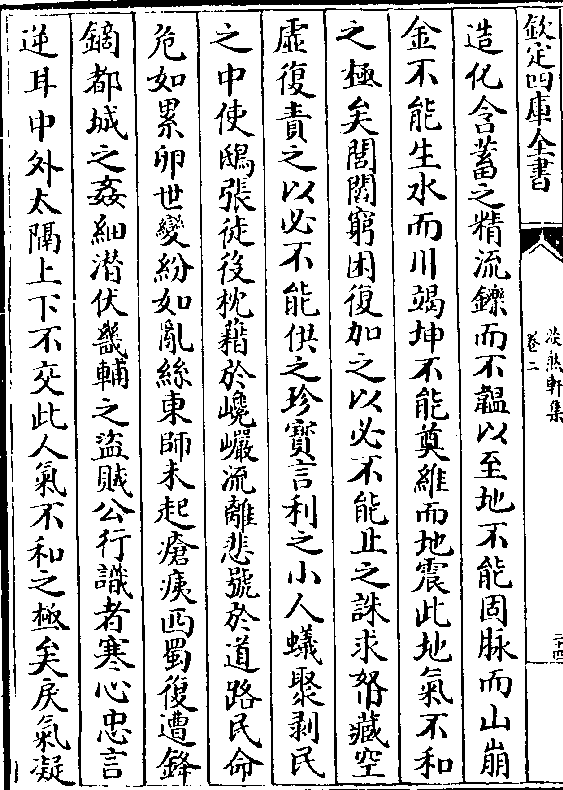 欽定四庫全書
淡然軒集
卷二
二十四
造化含蓄之精流鑠而不韞以至地不能固脉而山崩
金不能生水而川竭坤不能奠維而地震此地氣不和
之極矣閭閻窮困復加之以必不能止之誅求帑藏空
虚復責之以必不能供之珍寳言利之小人蟻聚剥民
之中使鴟張徒役枕藉於巉巗流離悲號於道路民命
危如累卵世變紛如亂絲東師未起瘡痍西蜀復遭鋒
鏑都城之姦細潛伏畿輔之盜賊公行識者寒心忠言
逆耳中外太隔上下不交此人氣不和之極矣戾氣凝